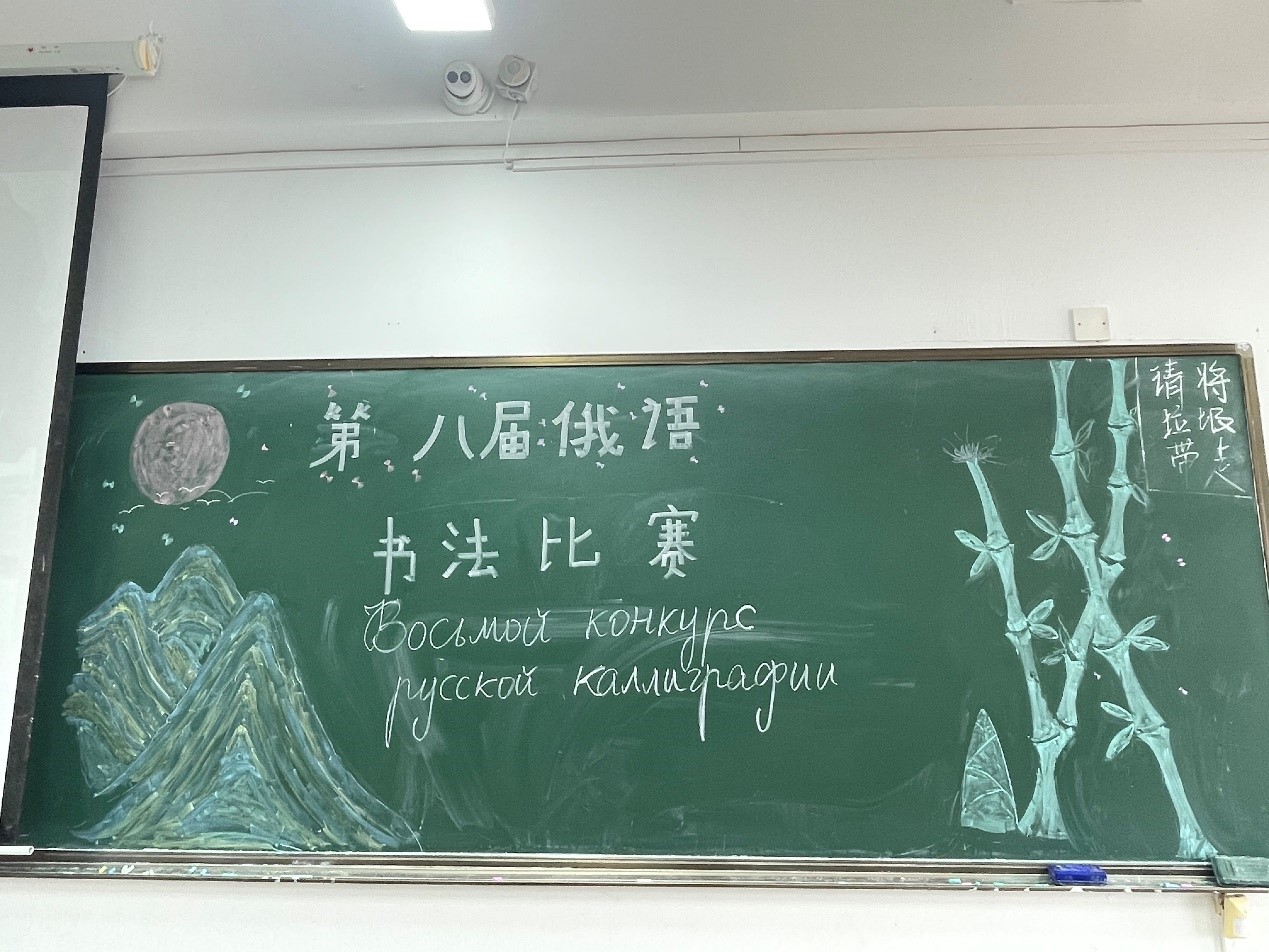 第八届俄语
书法比赛
Восьмой конкурс
русской каллиграфии
请将
带走